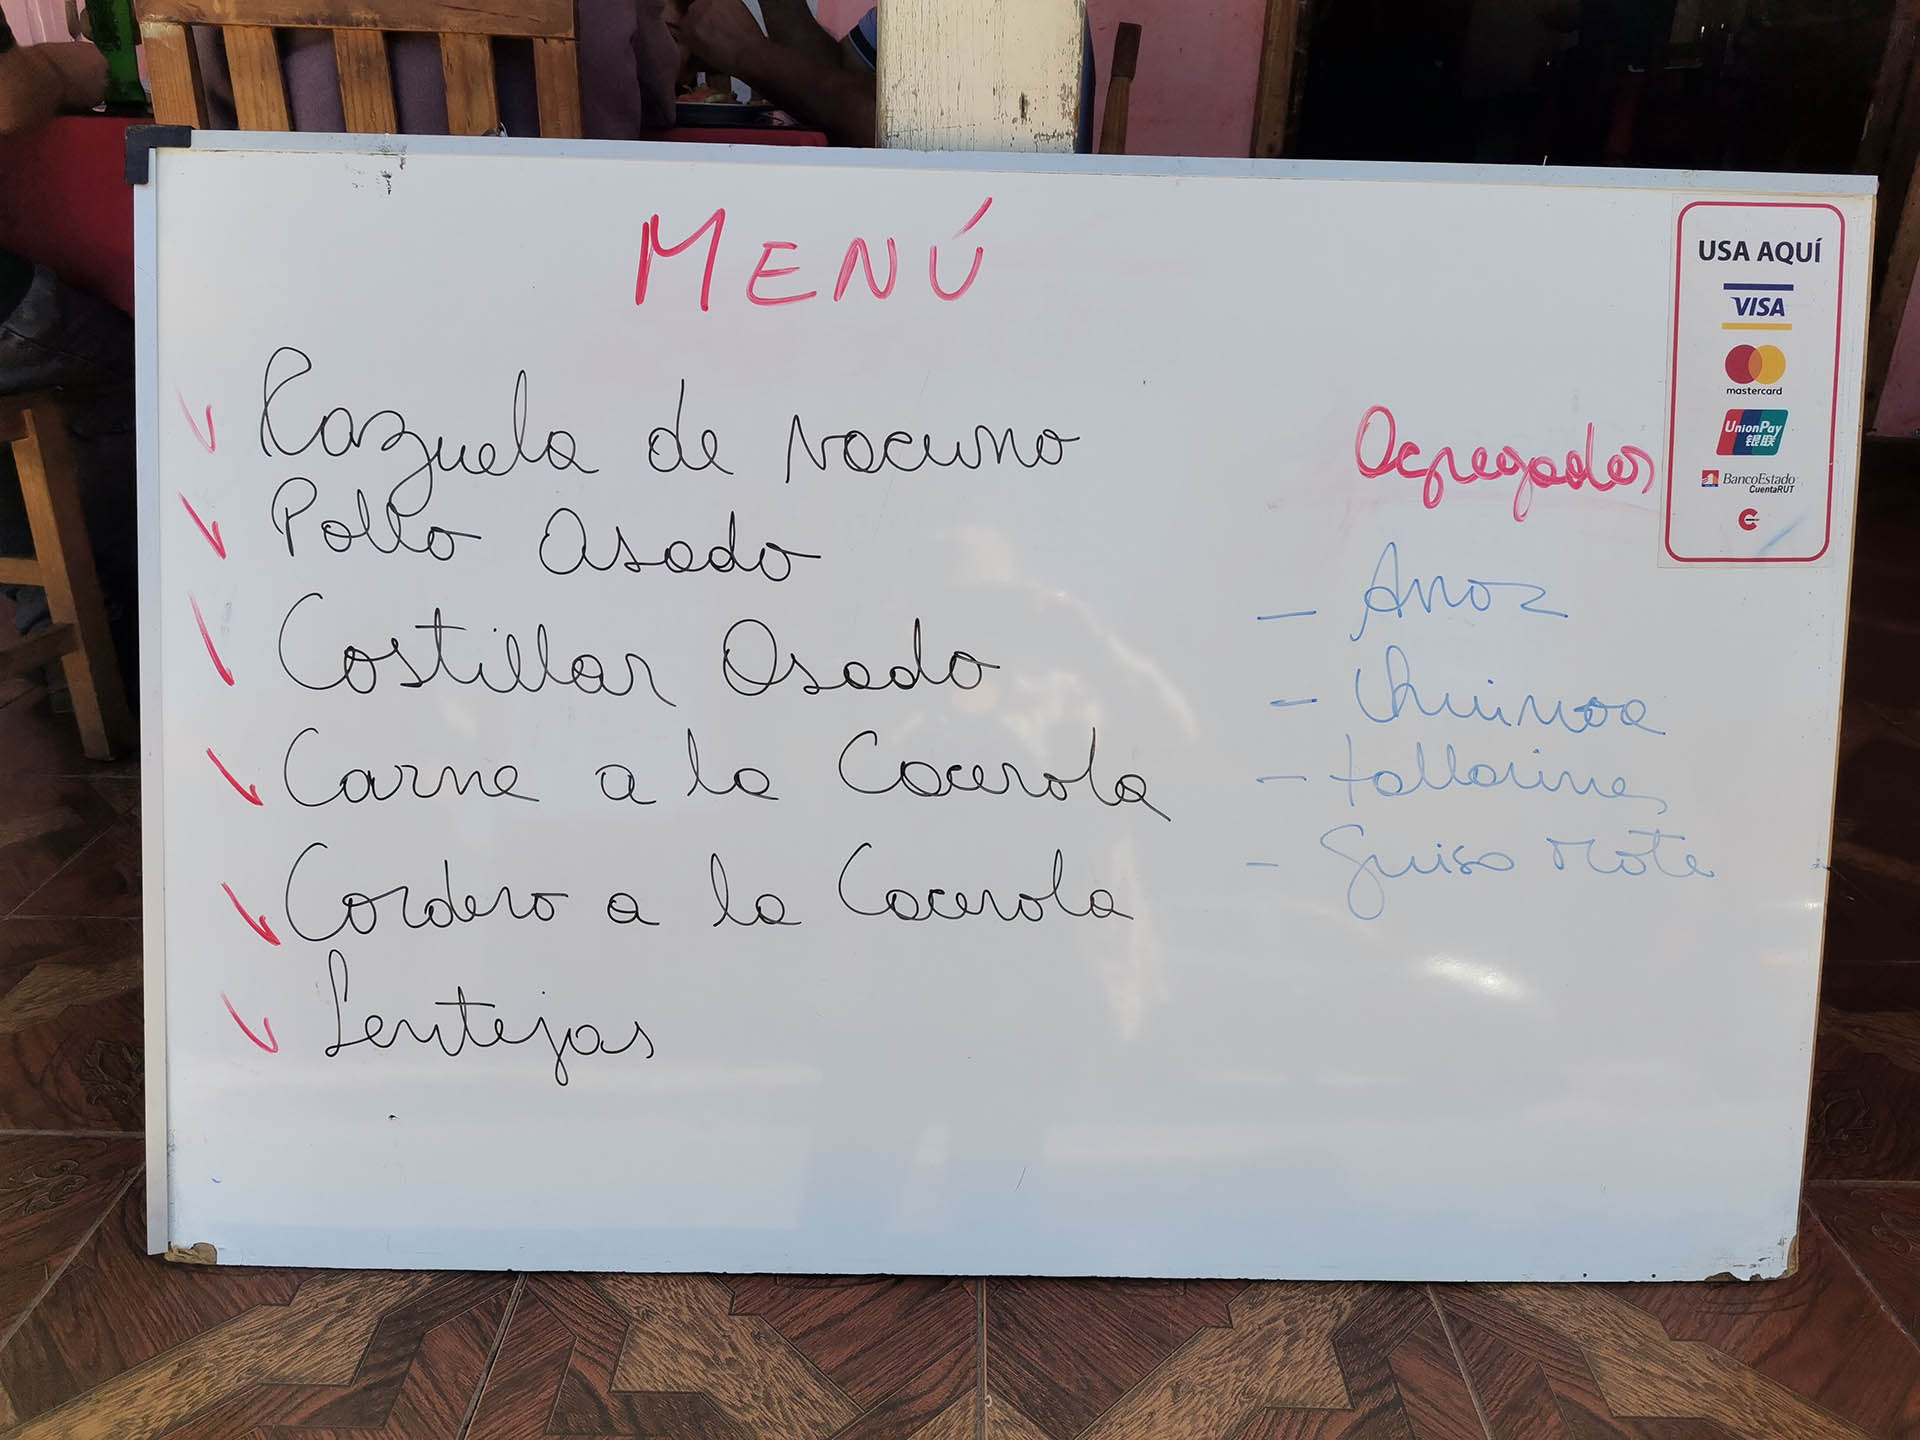 MENÚ
Kazuela de vacuno
Pollo Asado
Costillar Asado
Carne a la Cacerola
Cordero a la Cacerola
Lentejas
Agregados
- Arroz
- Chuinoa
- tallarines
- Guiso Mote
USA AQUÍ
VISA
mastercard
UnionPay
银联
BancoEstado
CuentaRUT